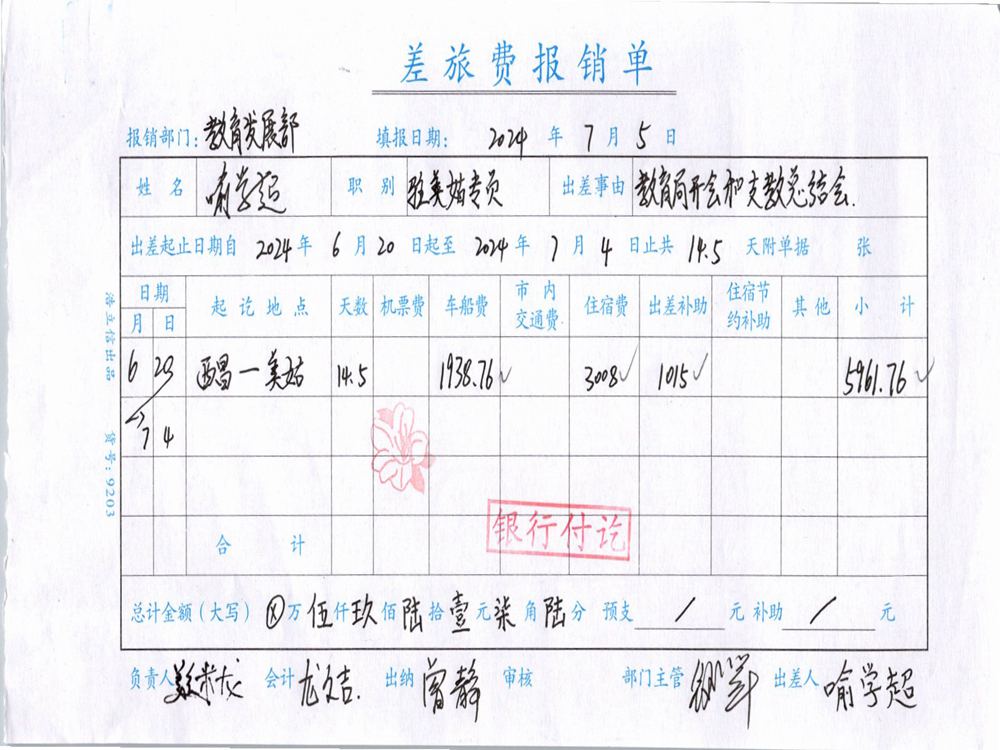 差旅费报销单
报销部门：教育发展部 填报日期： 2024 年 7 月 5 日
姓名 喻学超 职别 驻美姑专员 出差事由 教育局开会和支教总结会.
出差起止日期自 2024 年 6 月 20 日起至 2024 年 7 月 4 日止共 14.5 天附单据 张
日期 起讫地点 天数 机票费 车船费 市内交通费 住宿费 出差补助 住宿节约补助 其他 小计
月 日
6 20 西昌—美姑 14.5 1938.76✓ 3008✓ 1015✓ 5961.76✓
→7 4
银行付讫
合计
总计金额（大写） ⊗万伍仟玖佰陆拾壹元柒角陆分 预支 / 元 补助 / 元
负责人 会计 尤文吉. 出纳 曾静 审核 部门主管 出差人 喻学超
浩立信出品 货号：9203